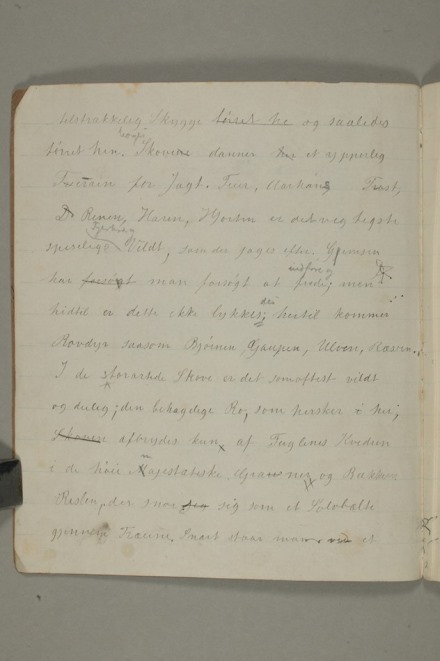 tilstrækkelig Skygge tørret he og saaledes
tørret hen. Skovene danner et ypperlig
Terrain for Jagt. Tiur, Aarhane,
Renen, Haren, Hjorten er det vegtigste
spiselige Vildt, som der jages efter. Gjemsen
har forsøgt man forsøgt at frede, men
hidtil er dette ikke lykkes; hertil kommer
Rovdyr saasom Bjørnen Gaupen, Ulven, Ræven.
I de storartede Skove er det somoftest vildt
og deilig; den behagelige Ro, som hersker i her,
Skoven afbrydes kun af Fuglenes Kvidren
i de høie Majestætiske Graner og Bækkens
Rislen, der snor sig som et Sølvbælte
gjennem Træerne. Snart staar man ved et